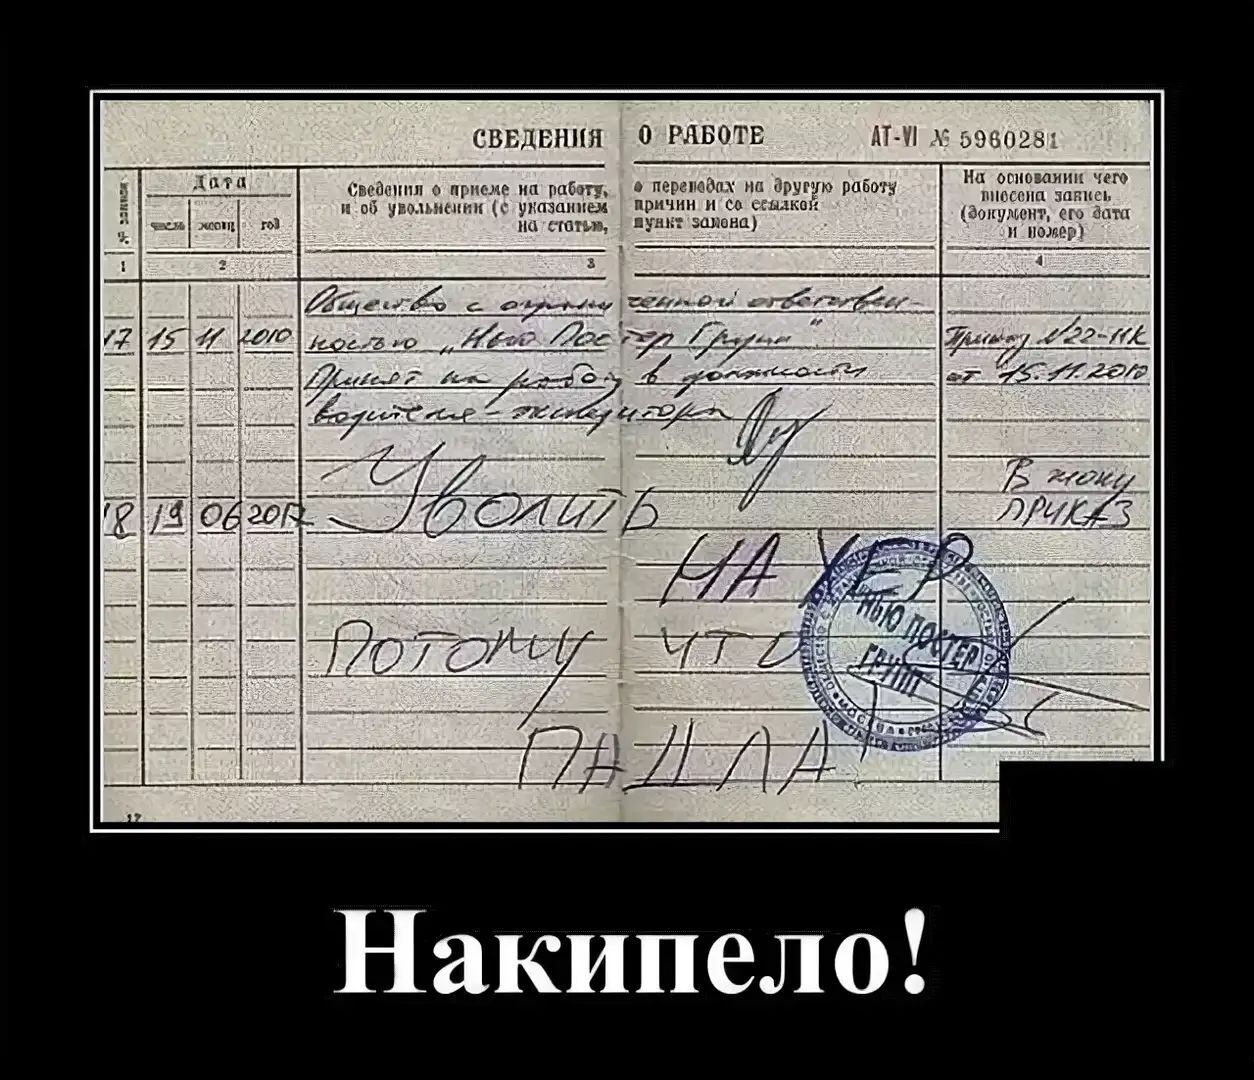 СВЕДЕНИЯ О РАБОТЕ АТ-VI № 5960281
№ записи
Дата
число месяц год
Сведения о приеме на работу, о переводах на другую работу
и об увольнении (с указанием причин и со ссылкой
на статью, пункт закона)
На основании чего
внесена запись
(документ, его дата
и номер)
1 2 3 4
Общество с ограниченной ответствен-
17 15 11 2010 ностью „Нью Постер Групп" Приказ №22-НК
Принят на работу в должности от 15.11.2010
водителя-экспедитора
18 19 06 2012 Уволить В жопу ПРИКАЗ
НА
Потому что
ПАДЛА
НЬЮ ПОСТЕР
ГРУПП
МОСКВА
17
Накипело!